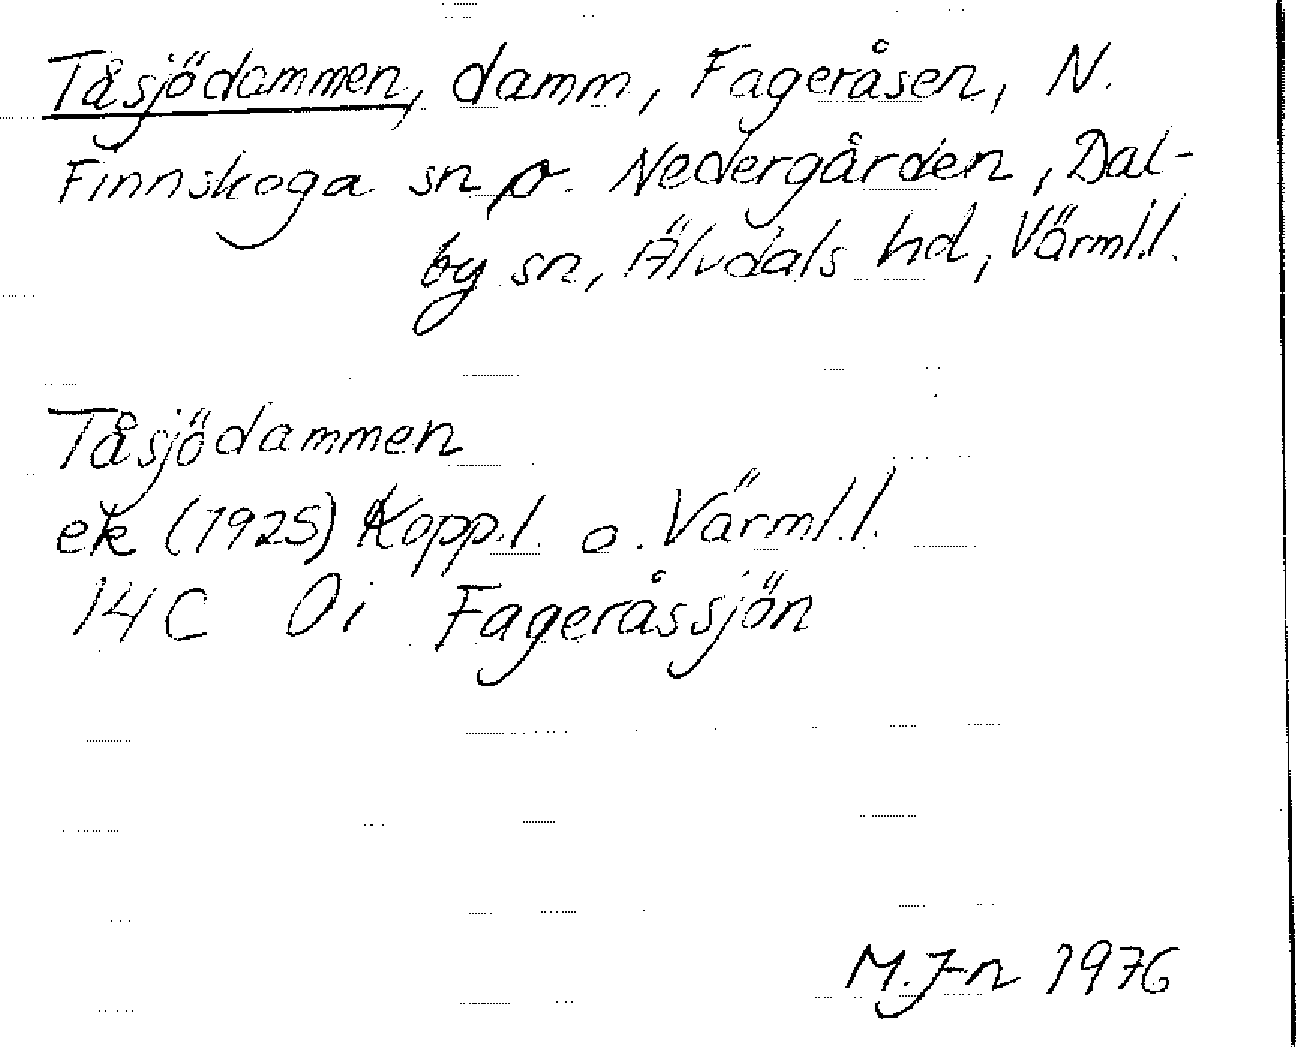 Tåsjödammen, damm, Fageråsen, N.
Finnskoga sn o. Nedergården, Dal-
by sn, Älvdals hd, Värml.l.
Tåsjödammen
ek (1925) Kopp.l. o. Värml.l.
14C 0i Fageråssjön
M.J-n 1976